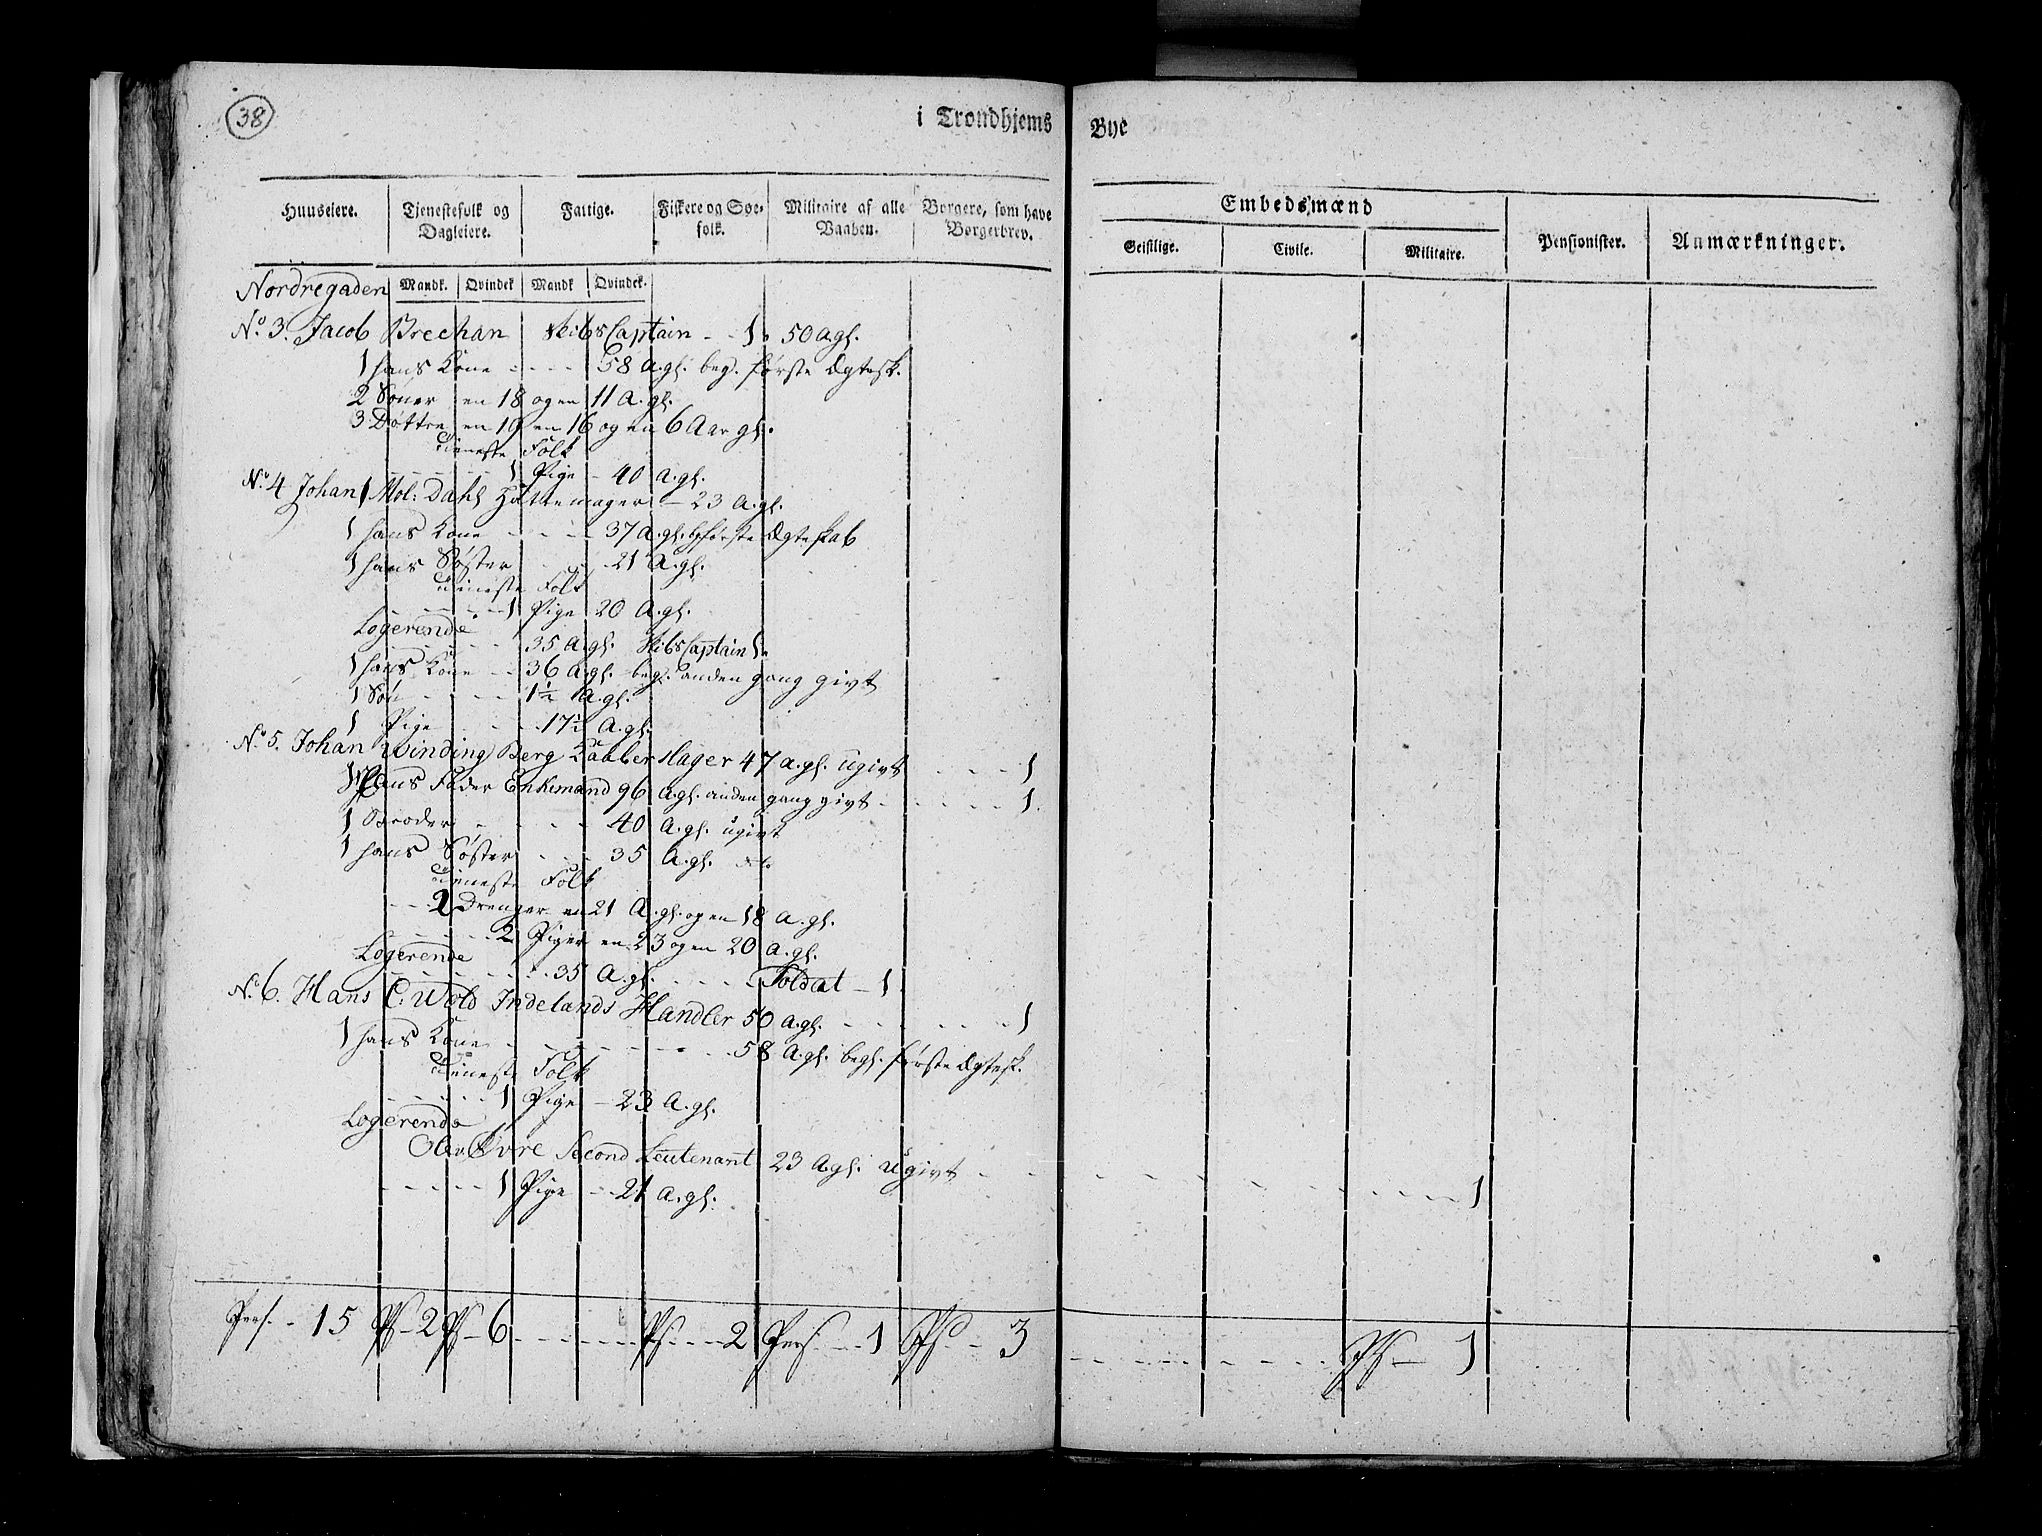 38
i Trondhjems Bye
Huuseiere. Tjenestefolk og Dagleiere. Fattige. Fiskere og Søe-folk. Militaire af alle Vaaben. Borgere, som have Borgerbrev. Embedsmænd Pensionister. Anmærkninger.
Geistlige. Civile. Militaire.
Nordregaden Mandk. Qvindek Mandk Qvindek.
No. 3. Jacob Brechan Skibs Captain - - 1. 50 A. gl.
1 hans Kone - - - - 58 A. gl. beg. første Ægtesk.
2 Sønner en 18 og en 11 A. gl.
3 Døttre en 19 en 16 og en 6 Aar gl.
Tieneste Folk
- - - - - - 1 Pige - 40 A. gl.
No. 4 Johan Mol: Dahl Hattemager - 23 A. gl.
1 hans Kone - - - - 37 A. gl. første Ægteskab
1 hans Søster - - - 21 A. gl.
Tieneste Folk
- - - - - - 1 Pige 20 A. gl.
Logerende
- - - - - - 35 A. gl. Skibs Captain 1.
1 hans Kone - - 36 A. gl. beg. anden gang givt
1 Søn - - - - 1½ A. gl.
1 Pige - - - 17½ A. gl.
No. 5. Johan Winding Berg Kaabberslager 47 a. gl. ugivt - - - - 1
1 Hans Fader Enkemand 96 A. gl. anden gang givt - - - - - 1.
1 Broder - - - - 40 A. gl. ugivt
1 hans Søster - - - 35 A. gl.
Tieneste Folk
- - - 2 Drenger en 21 A. gl. og en 18 A. gl.
- - - - - 2 Piger en 23 og en 20 A. gl.
Logerende
- - - - - - 35 A. gl. - - - - - Soldat - 1
No. 6. Hans C. Wold Indelands Handler 50 A. gl. - - - - - - - 1
1 hans Kone - - - - - - - - 58 A. gl. begl. første Ægtesk.
Tieneste Folk
- - - - - 1 Pige - 23 A. gl.
Logerende
Ole Øvre Second Leutenant 23 A. gl. ugivt - - - - - - - - - - - 1
- - - - - 1 Pige - - 21 A. gl.
Pers. - 15 Ps - 2 Ps - 6 - - - - - - Ps. - - - 2 Pers. - - - 1 Ps. - - 3 - - - - - - - - Ps - 1